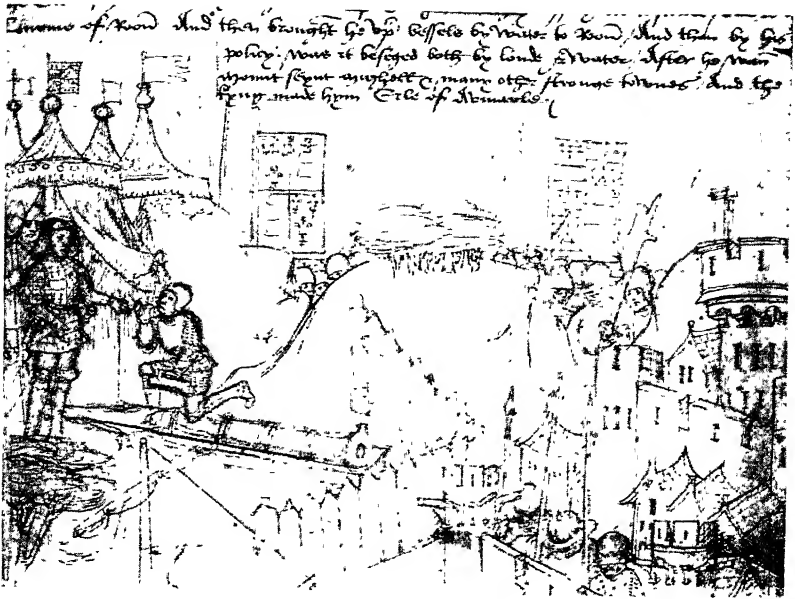 of Roon And then brought he vp vessels by Water to Roon / And then by his
policy / was it beseged both by londe & Water / After he wan
mount seynt mighell & many other stronge townes And the
kyng made hym Erle of Aumarle /